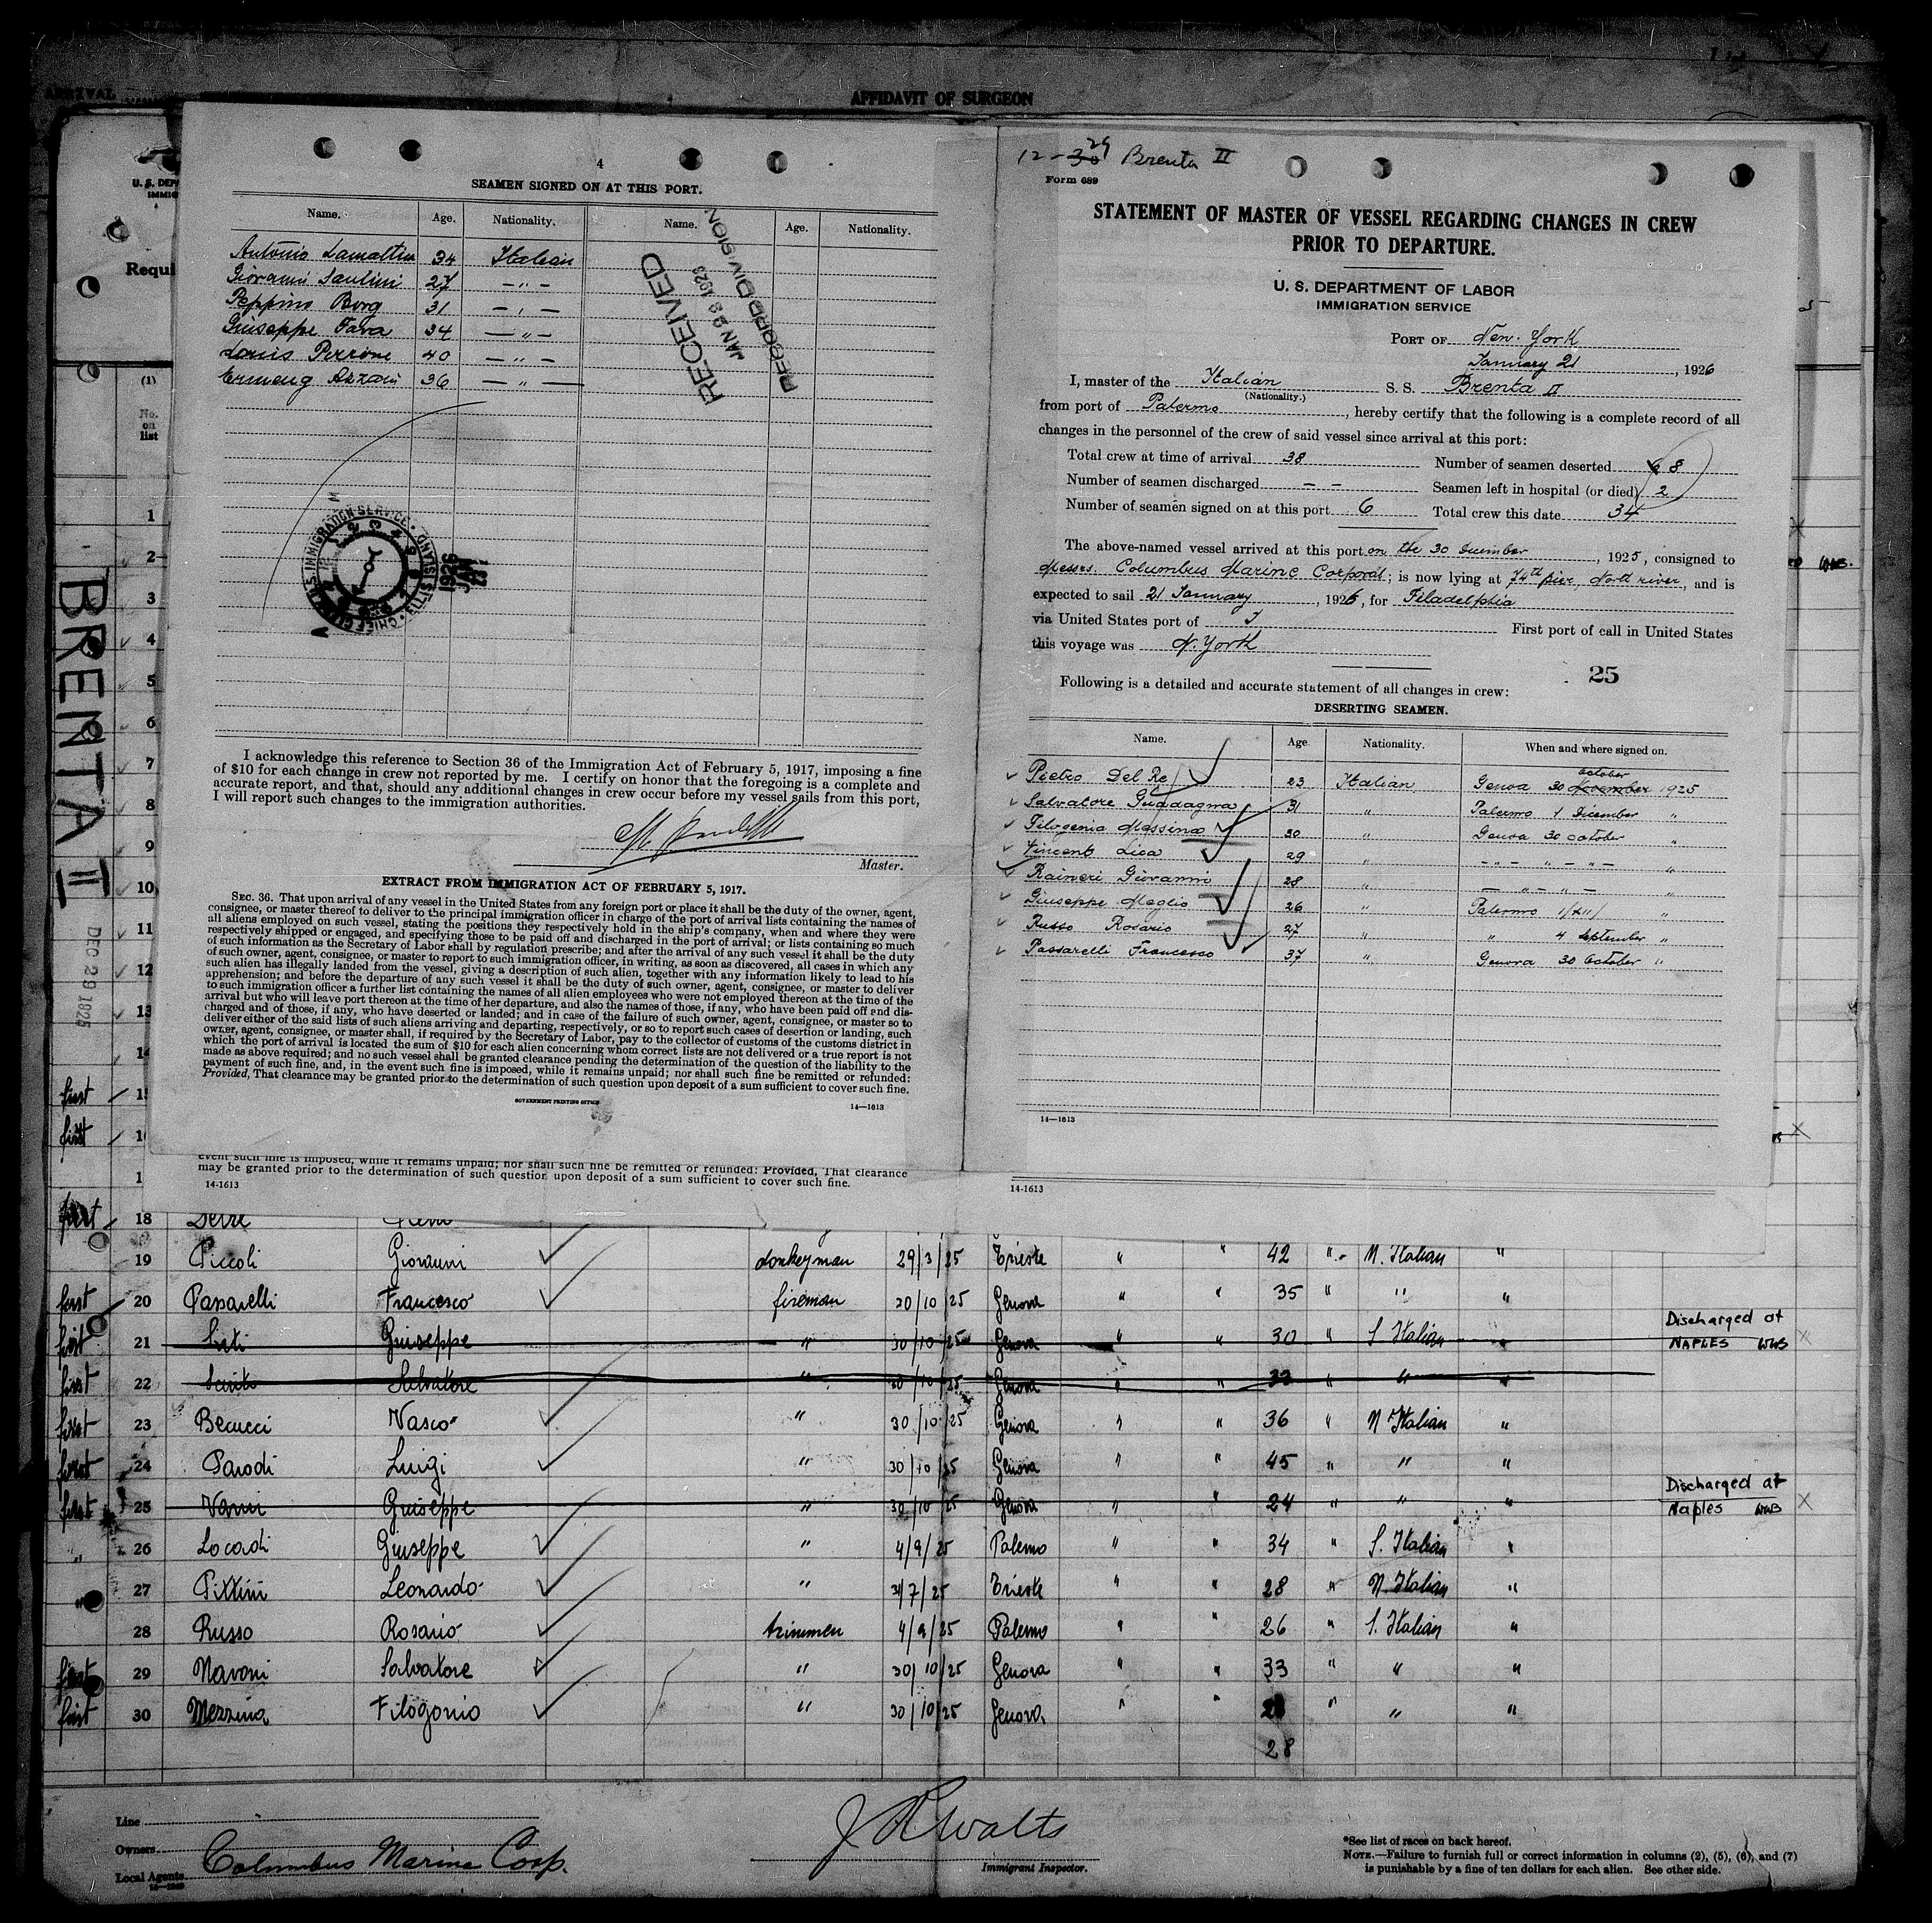 ARRIVAL
AFFIDAVIT OF SURGEON
U. S. DEP
IMMIG
Requi
(1)
No.
on
list
1
2
3
4
5
6
7
8
9
10
11
12
13
14
BRENTA II
DEC 29 1925
4
SEAMEN SIGNED ON AT THIS PORT.
Name. Age. Nationality. Name. Age. Nationality.
Antonio 34 Italian
Giovanni Saulini 27 - " -
Peppino Borg 31 - " -
Giuseppe Fava 34 - " -
Louis Perrone 40 - " -
Ermeng Azzari 36 - " -
RECEIVED
JAN 23 1926
RECORD DIVISION
U.S. IMMIGRATION SERVICE
CHIEF CLERK
ELLIS ISLAND
1926 JAN
I acknowledge this reference to Section 36 of the Immigration Act of February 5, 1917, imposing a fine
of $10 for each change in crew not reported by me. I certify on honor that the foregoing is a complete and
accurate report, and that, should any additional changes in crew occur before my vessel sails from this port,
I will report such changes to the immigration authorities.
Master.
EXTRACT FROM IMMIGRATION ACT OF FEBRUARY 5, 1917.
SEC. 36. That upon arrival of any vessel in the United States from any foreign port or place it shall be the duty of the owner, agent,
consignee, or master thereof to deliver to the principal immigration officer in charge of the port of arrival lists containing the names of
all aliens employed on such vessel, stating the positions they respectively hold in the ship's company, when and where they were
respectively shipped or engaged, and specifying those to be paid off and discharged in the port of arrival; or lists containing so much
of such information as the Secretary of Labor shall by regulation prescribe; and after the arrival of any such vessel it shall be the duty
of such owner, agent, consignee, or master to report to such immigration officer, in writing, as soon as discovered, all cases in which any
such alien has illegally landed from the vessel, giving a description of such alien, together with any information likely to lead to his
apprehension; and before the departure of any such vessel it shall be the duty of such owner, agent, consignee, or master to deliver
to such immigration officer a further list containing the names of all alien employees who were not employed thereon at the time of the
arrival but who will leave port thereon at the time of her departure, and also the names of those, if any, who have been paid off and dis-
charged and of those, if any, who have deserted or landed; and in case of the failure of such owner, agent, consignee, or master so to
deliver either of the said lists of such aliens arriving and departing, respectively, or so to report such cases of desertion or landing, such
owner, agent, consignee, or master shall, if required by the Secretary of Labor, pay to the collector of customs of the customs district in
which the port of arrival is located the sum of $10 for each alien concerning whom correct lists are not delivered or a true report is not
made as above required; and no such vessel shall be granted clearance pending the determination of the question of the liability to the
payment of such fine, and, in the event such fine is imposed, while it remains unpaid; nor shall such fine be remitted or refunded:
Provided, That clearance may be granted prior to the determination of such question upon deposit of a sum sufficient to cover such fine.
GOVERNMENT PRINTING OFFICE
14—1613
event such fine is imposed, while it remains unpaid; nor shall such fine be remitted or refunded: Provided, That clearance
may be granted prior to the determination of such question upon deposit of a sum sufficient to cover such fine.
14-1613
12-30 29 Brenta II
Form 689
STATEMENT OF MASTER OF VESSEL REGARDING CHANGES IN CREW
PRIOR TO DEPARTURE.
U. S. DEPARTMENT OF LABOR
IMMIGRATION SERVICE
PORT OF New-York
January 21, 1926
I, master of the Italian S. S. Brenta II
(Nationality.)
from port of Palermo, hereby certify that the following is a complete record of all
changes in the personnel of the crew of said vessel since arrival at this port:
Total crew at time of arrival 38 Number of seamen deserted 8
Number of seamen discharged - - Seamen left in hospital (or died) 2
Number of seamen signed on at this port 6 Total crew this date 34
The above-named vessel arrived at this port on the 30 December, 1925, consigned to
Messrs. Columbus Marine Corporat; is now lying at 74th pier, North river, and is
expected to sail 21 January, 1926, for Filadelphia
via United States port of First port of call in United States
this voyage was N. York
25
Following is a detailed and accurate statement of all changes in crew:
DESERTING SEAMEN.
Name. Age. Nationality. When and where signed on.
Pietro Del Re 23 Italian Genoa 30 November October 1925
Salvatore Guadagna 31 " Palermo 1 December "
Filogenia Messina 20 " Genoa 30 october "
Vincent Lica 29 " - " - " - " - "
Raineri Giovanni 28 " - " - " - "
Giuseppe Meglio 26 " Palermo 1/XII/ "
Russo Rosario 27 " " 4 September "
Passarelli Francesco 37 " Genova 30 October "
14—1613
14-1613
first 15
first 16
first 18 Delre
19 Piccoli Giovanni donkeyman 29/3/25 Trieste " " 42 " N. Italian "
first 20 Passarelli Francesco fireman 30/10/25 Genova " " 35 " " "
first 21 Giuseppe " 30/10/25 Genova " " 30 " S. Italian " Discharged at NAPLES WWB
first 22 Salvatore " 30/10/25 Genova " " 32 " " "
first 23 Becucci Vasco " 30/10/25 Genova " " 36 " N. Italian "
first 24 Parodi Luigi " 30/10/25 Genova " " 45 " " "
first 25 Vanni Giuseppe " 30/10/25 Genova " " 24 " " " Discharged at Naples WWB
" 26 Locardi Giuseppe " 4/9/25 Palermo " " 34 " S. Italian "
" 27 Pittini Leonardo " 31/7/25 Trieste " " 28 " N. Italian "
28 Russo Rosario trimmer 4/9/25 Palermo " " 26 " S. Italian "
first 29 Navoni Salvatore " 30/10/25 Genova " " 33 " " "
first 30 Mezzina Filogonio " 30/10/25 Genova " " 28 " " "
28
Line
Owners
Local Agents Columbus Marine Corp.
Immigrant Inspector.
*See list of races on back hereof.
NOTE.—Failure to furnish full or correct information in columns (2), (5), (6), and (7)
is punishable by a fine of ten dollars for each alien. See other side.